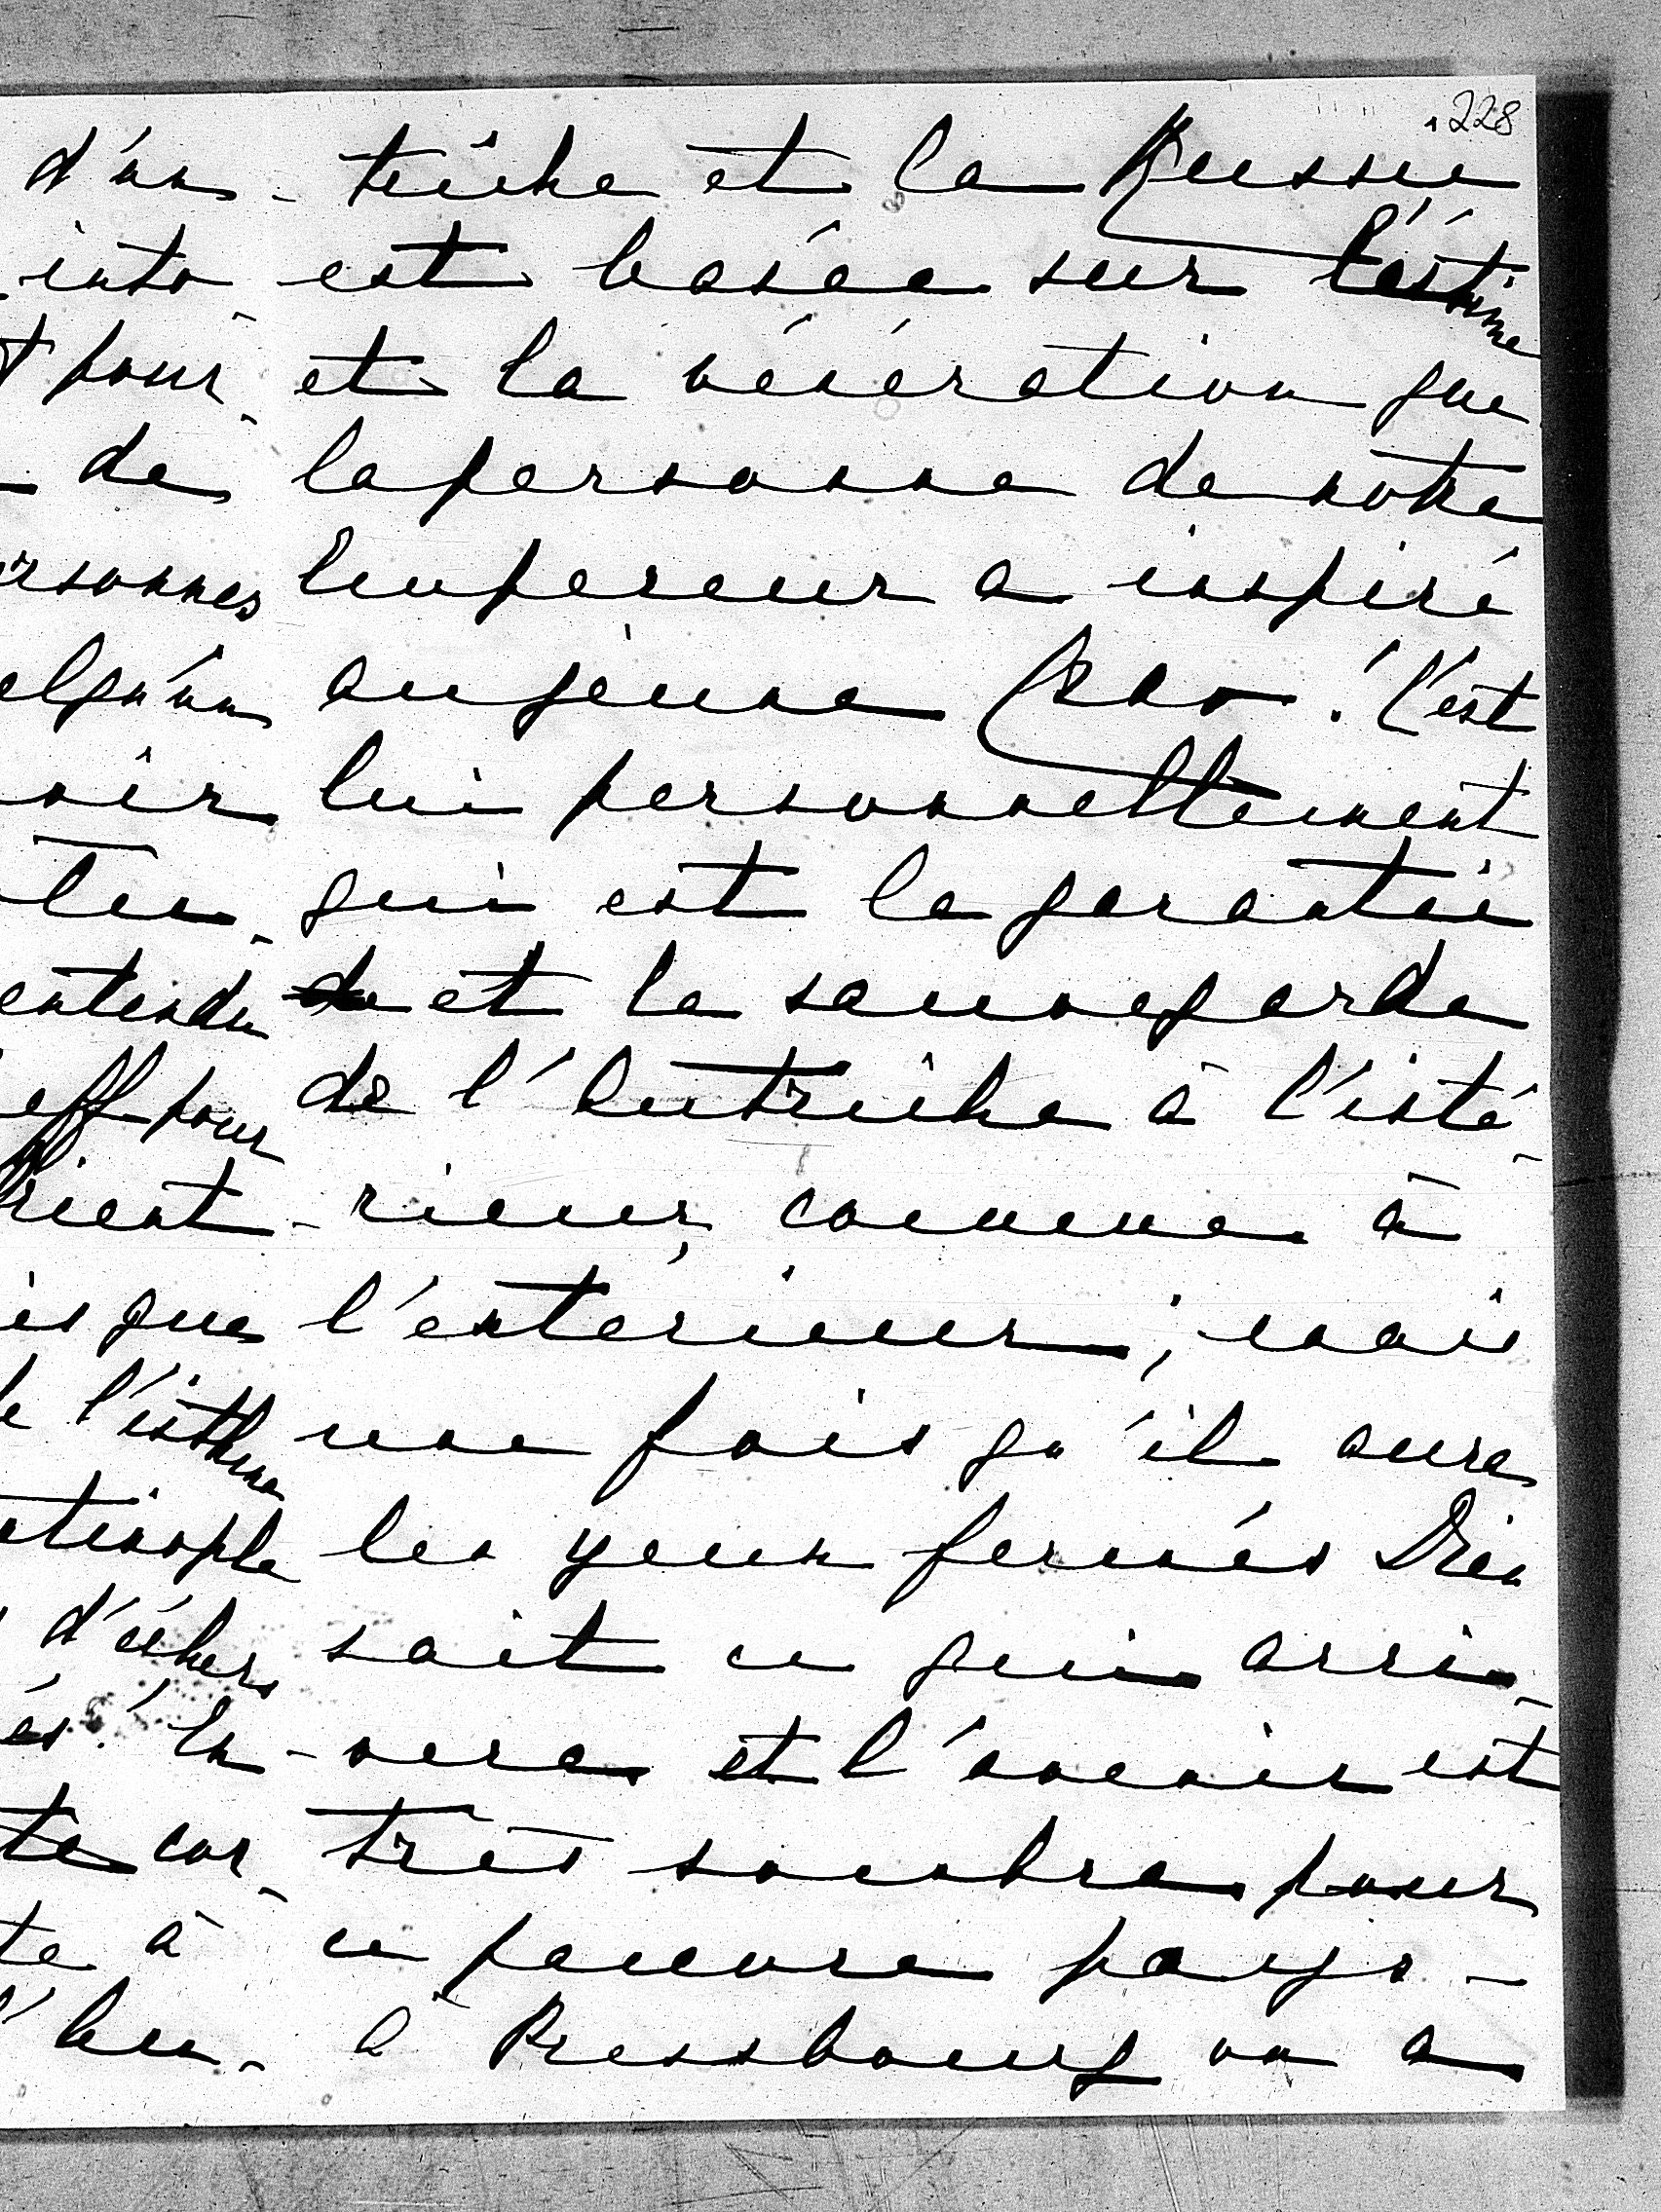 228
d'un-
into-
pour-
de
rsonnes
elqu'un
oir
ten-
entendu
eff pour
rient
is que
l'isthme
tinople
d'échers
és! En
te cor-
te à
l'Au-
triche et la Russie
est basée sur l'estime
et la vénération que
la personne de notre
Empereur a inspiré
au jeune Czar! C'est
lui personnellement
qui est la garantie
de et la sauvegarde
de l'Autriche à l'inté-
-rieur, comme à
l'extérieur; mais
une fois qu'il aura
les yeux fermés Dieu
sait ce qui arri-
-vera et l'avenir est
très sombre pour
ce pauvre pays-
à Pressbourg on a